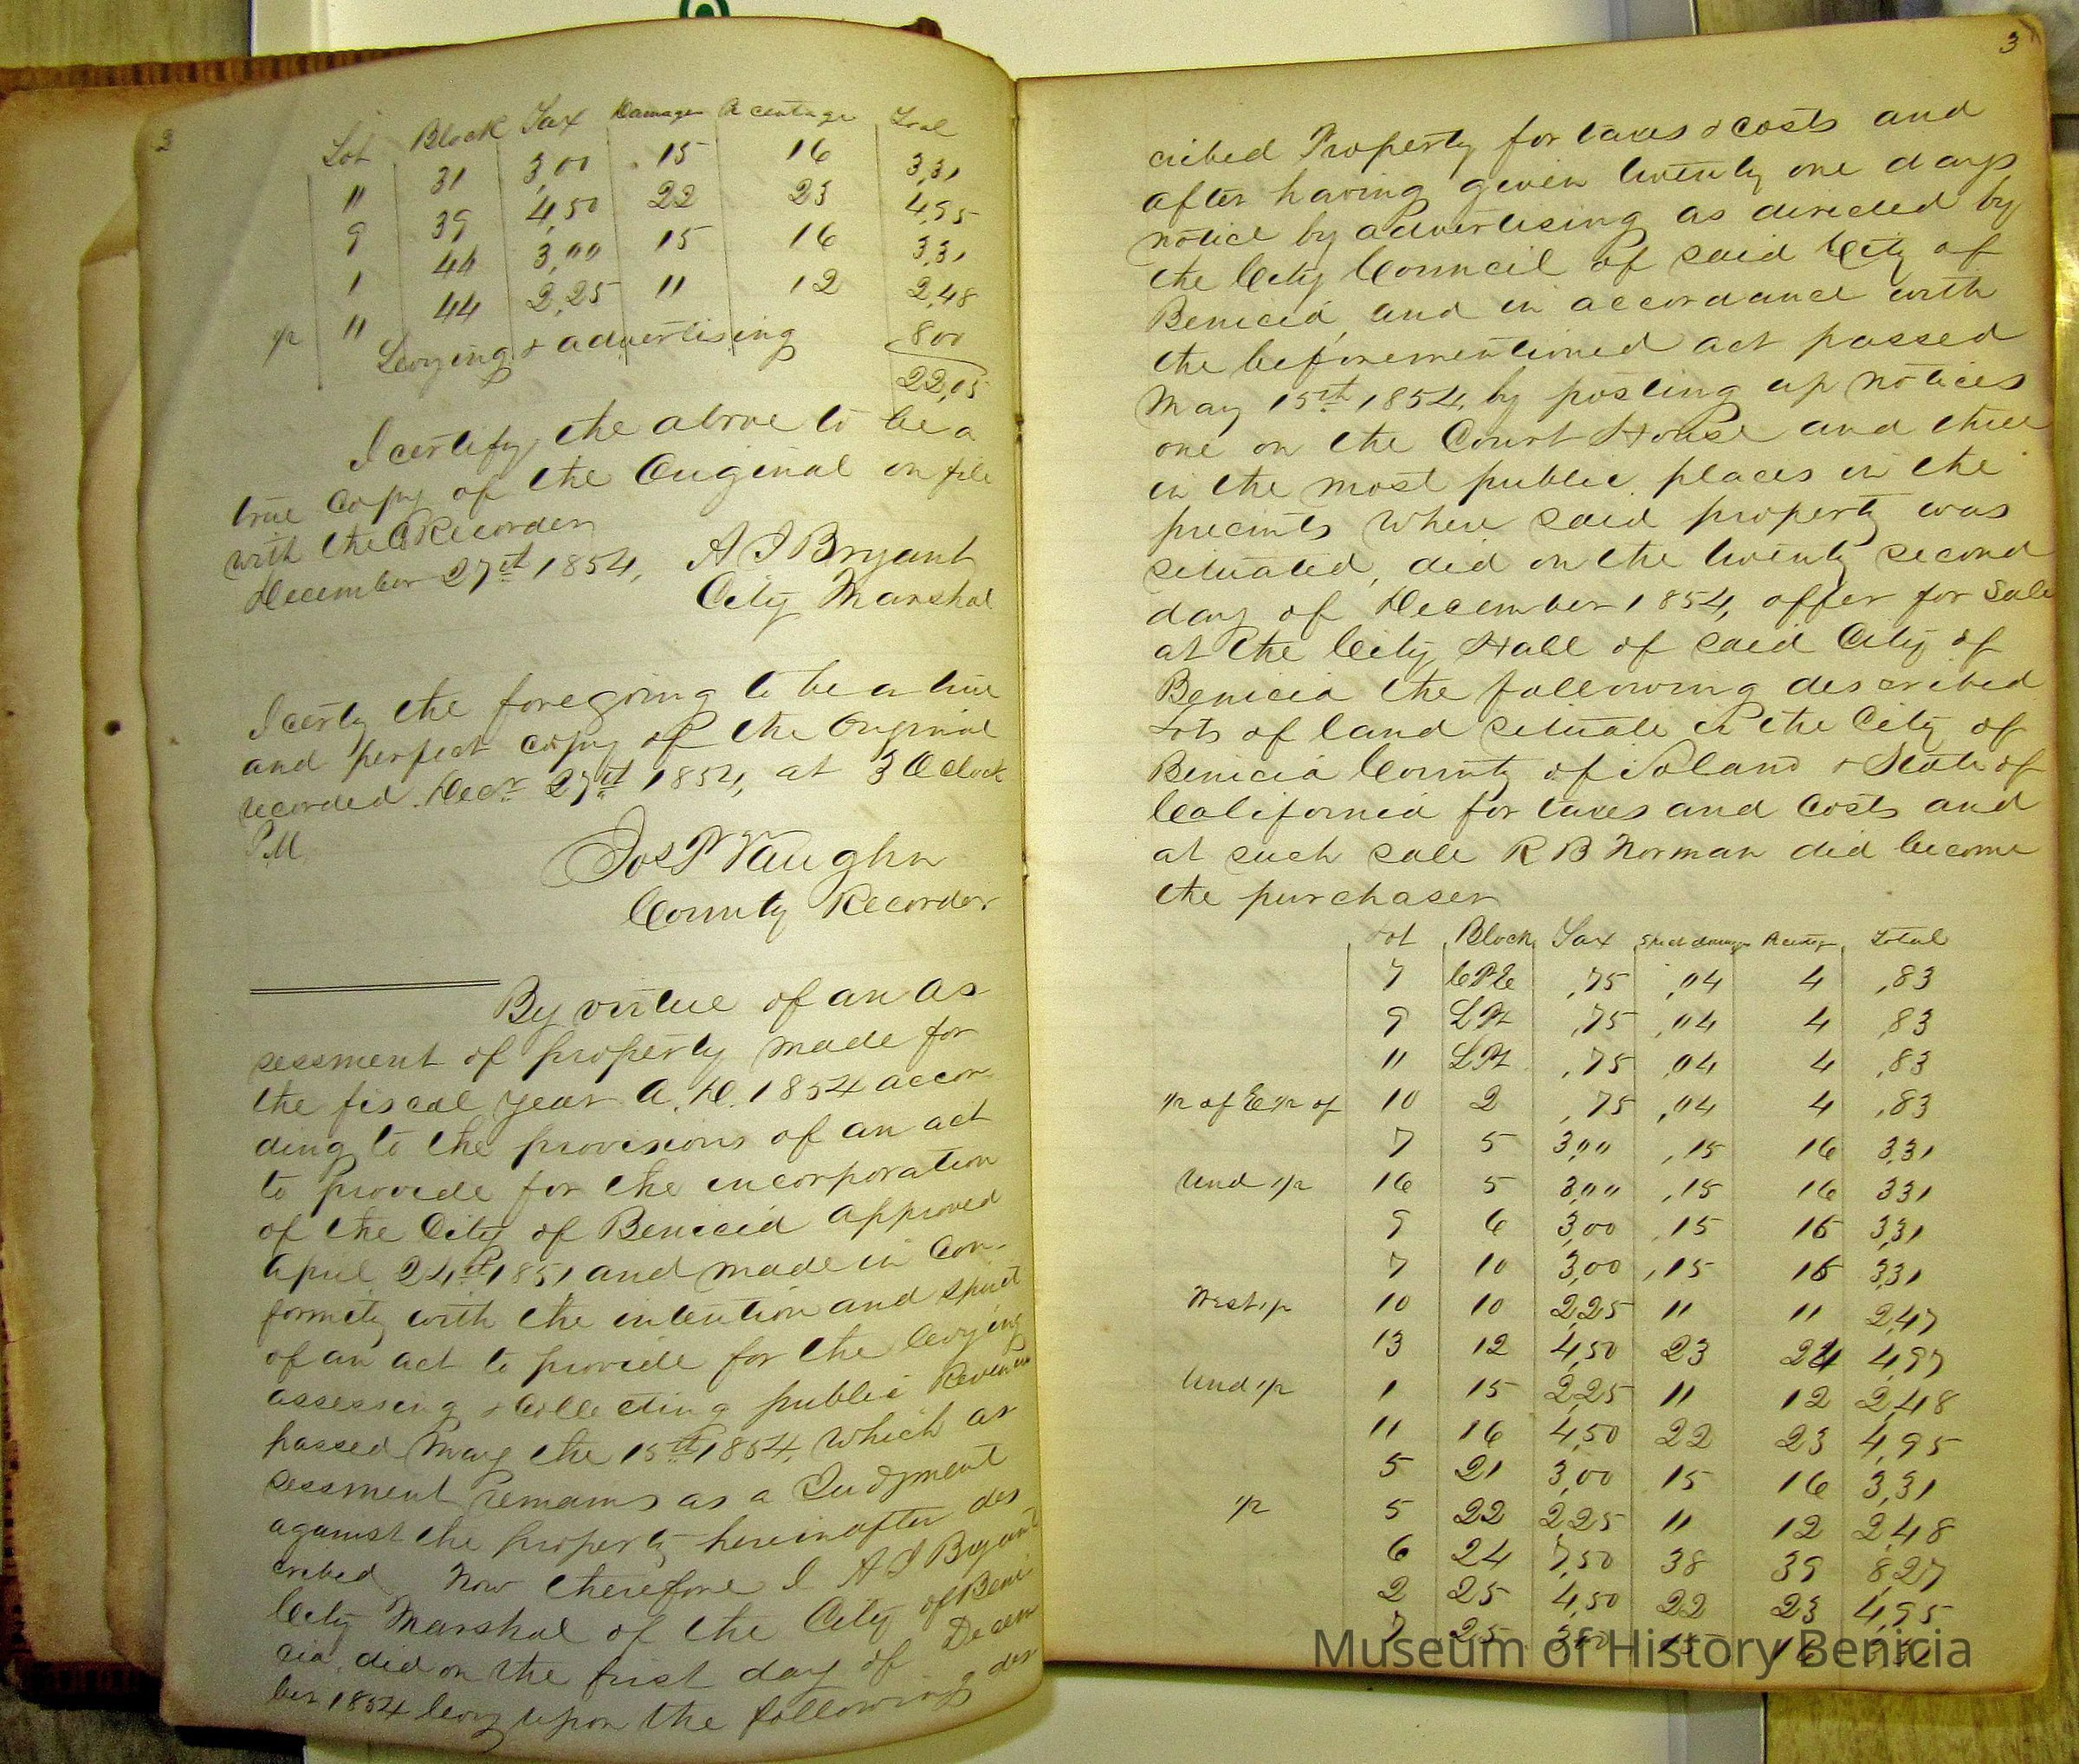 2
Lot Block Tax Damages Pr centage Total
" 31 3,00 .15 16 3,31
9 39 4,50 22 23 4,95
1 44 3,00 15 16 3,31
1/2 " 44 2,25 11 12 2,48
Levying & advertising 800
22,05
I certify the above to be a
true Copy of the Original on file
with the Recorder
December 27th 1854, A J Bryant
City Marshal
I certy the foregoing to be a true
and perfect copy of the Original
recorded Decr 27th 1854, at 3 O Clock
P.M.
Jos P Vaughn
County Recorder
By virtue of an as
sessment of property made for
the fiscal year A.D. 1854 accor
ding to the provisions of an act
to provide for the incorporation
of the City of Benicia approved
April 24th 1851 and made in Con-
formity with the intention and spirit
of an act to provide for the levying
assessing & Collecting public Revenue
passed May the 15th 1854, which as
sessment remains as a Judgment
against the property hereinafter des
cribed Now therefore I A J Bryant
City Marshal of the City of Beni
cia, did on the first day of Decem
ber 1854 levy upon the following des
3
cribed Property for taxes & costs and
after having given twenty one days
notice by advertising as directed by
the City Council of said City of
Benicia, and in accordance with
the beforementioned act passed
May 15th 1854, by posting up notices
one on the Court House and three
in the most public places in the
precints where said property was
situated, did on the twenty second
day of December 1854, offer for Sale
at the City Hall of said City of
Benicia the following described
Lots of land situate in the City of
Benicia County of Solano & State of
California for taxes and Costs and
at such sale R B Norman did become
the purchaser
Lot Block Tax damage Total
7 ,75 ,04 4 ,83
9 ,75 ,04 4 ,83
11 ,75 ,04 4 ,83
1/2 of E 1/2 of 10 2 ,75 ,04 4 ,83
7 5 3,00 ,15 16 3,31
Und 1/2 16 5 3,00 ,15 16 3,31
9 6 3,00 ,15 16 3,31
7 10 3,00 ,15 16 3,31
West 1/2 10 10 2,25 11 11 2,47
13 12 4,50 23 24 4,97
Und 1/2 1 15 2,25 11 12 2,48
11 16 4,50 22 23 4,95
5 21 3,00 15 16 3,31
1/2 5 22 2,25 11 12 2,48
6 24 7,50 38 39 8,27
2 25 4,50 22 23 4,95
7 25 3,00 15 16 3,31
Museum of History Benicia